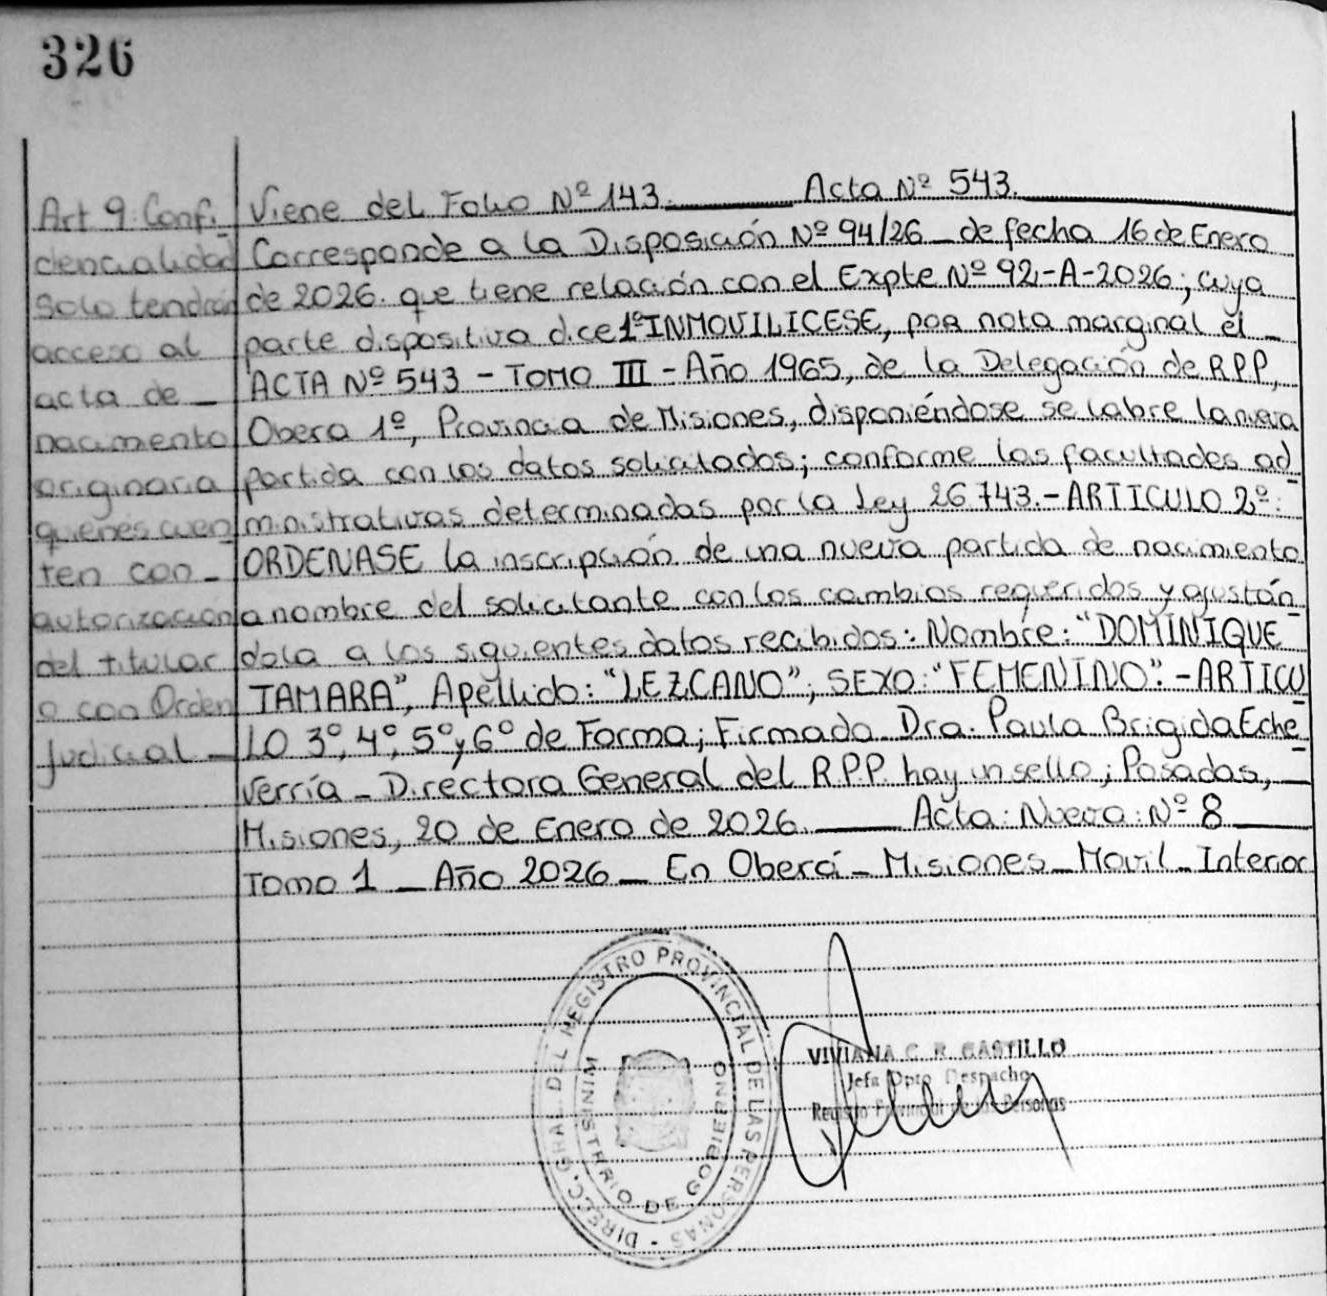 326
Art 9. Confi_
dencialidad
Solo tendrán
acceso al
acta de _
nacimento
originaria
quienes cuen_
ten con _
autorización
del titular
o con Orden
Judicial _
Viene del Folio Nº 143. Acta Nº 543.
Corresponde a la Disposición Nº 94/26 _ de fecha 16 de Enero
de 2026. que tiene relación con el Expte Nº 92-A-2026; cuya
parte dispositiva dice 1º INMOVILICESE, por nota marginal el _
ACTA Nº 543 - TOMO III - Año 1965, de la Delegación de R.P.P,
Obera 1º, Provincia de Misiones, disponiéndose se labre la nueva
partida con los datos solicitados; conforme las facultades ad_
ministrativas determinadas por la Ley 26.743.- ARTICULO 2º:
ORDENASE la inscripción de una nueva partida de nacimiento
a nombre del solicitante con los cambios requeridos y ajustán_
dola a los siguientes datos recibidos: Nombre: "DOMINIQUE
TAMARA", Apellido: "LEZCANO"; SEXO: "FEMENINO". - ARTICU_
LO 3º, 4º, 5º y 6º de Forma; Firmada Dra. Paula Brigida Eche_
verría _ Directora General del R.P.P. hay un sello; Posadas, _
Misiones, 20 de Enero de 2026. Acta: Nueva: Nº 8
Tomo 1 _ Año 2026 _ En Oberá _ Misiones _ Movil _ Interior
DIRECC. GRAL. DEL REGISTRO PROVINCIAL DE LAS PERSONAS -
MINISTERIO DE GOBIERNO
VIVIANA C. R. CASTILLO
Jefa Dpto Despacho
Registro Provincial de las Personas